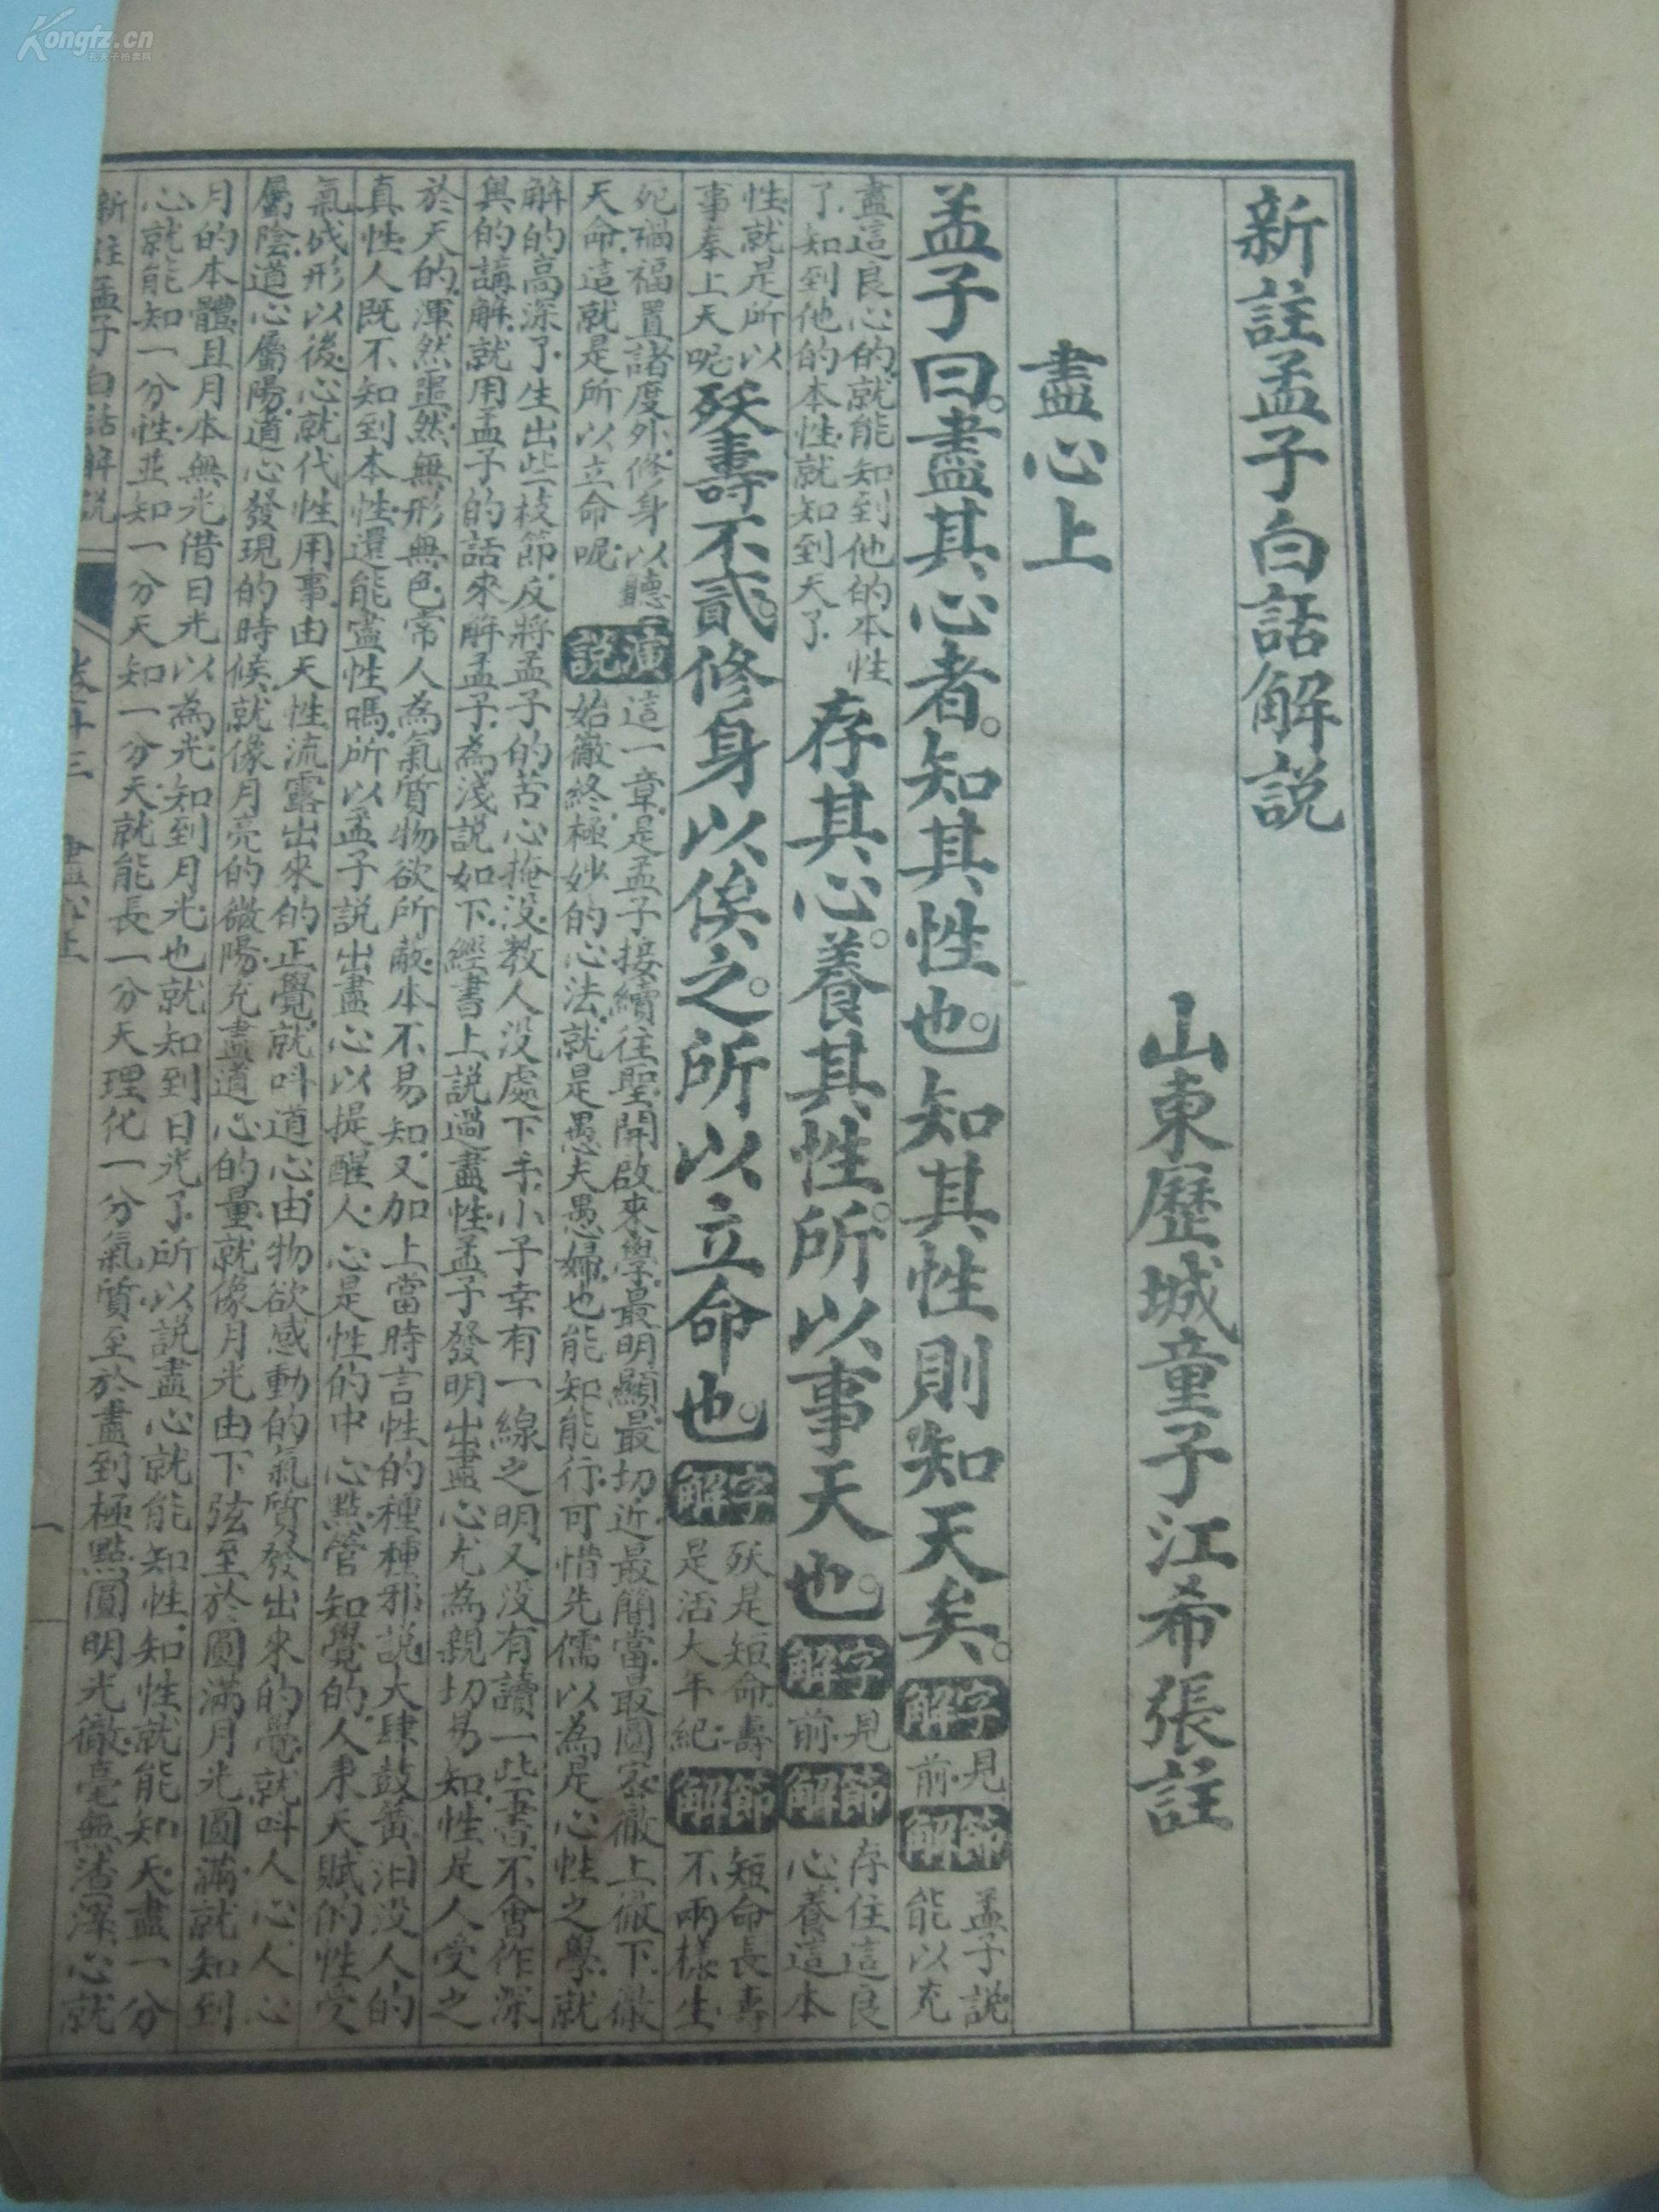 Kongfz.cn
孔夫子拍賣網
新註孟子白話解説
山東歷城童子江希張註
盡心上
孟子曰。盡其心者。知其性也。知其性則知天矣。
字解
見前.
節解
孟子説.能以充
盡這良心的.就能知到他的本性
了.知到他的本性.就知到天了.
存其心。養其性。所以事天也。
字解
見前.
節解
存住這良心.養這本
性.就是所以
事奉上天呢.
殀壽不貳。修身以俟之。所以立命也。
字解
殀是短命.壽是活大年紀.
節解
短命長壽不兩樣.生
死禍福.置諸度外.修身以聽
天命.這就是所以立命呢.
演説
這一章.是孟子接續往聖.開啟來學.最明顯.最切近.最簡當.最圓密.徹上徹下.徹
始徹終.極妙的心法.就是愚夫愚婦.也能知能行.可惜先儒以為是心性之學.就
解的高深了.生出些枝節.反將孟子的苦心掩没.教人没處下手.小子幸有一線之明.又没有讀一些書.不會作深
奥的講解.就用孟子的話來解孟子.為淺説如下.經書上説過盡性.孟子發明出盡心.尤為親切易知.性是人受之
於天的.渾然噩然.無形無色.常人為氣質物欲所蔽.本不易知.又加上當時言性的種種邪説.大肆鼓簧.汩没人的
真性.人既不知到本性.還能盡性嗎.所以孟子説出盡心.以提醒人.心是性的中心點.管知覺的.人秉天賦的性.受
氣成形以後.心就代性用事.由天性流露出來的正覺.就叫道心.由物欲感動的氣質發出來的覺.就叫人心.人心
屬陰.道心屬陽.道心發現的時候.就像月亮的微陽.充盡道心的量.就像月光由下弦至於圓滿.月光圓滿.就知到
月的本體.且月本無光.借日光以為光.知到月光.也就知到日光了.所以説盡心就能知性.知性就能知天.盡一分
心.就能知一分性.並知一分天.知一分天.就能長一分天理.化一分氣質.至於盡到極點.圓明光徹.毫無渣滓.心就
新註孟子白話解説
盡心上
一